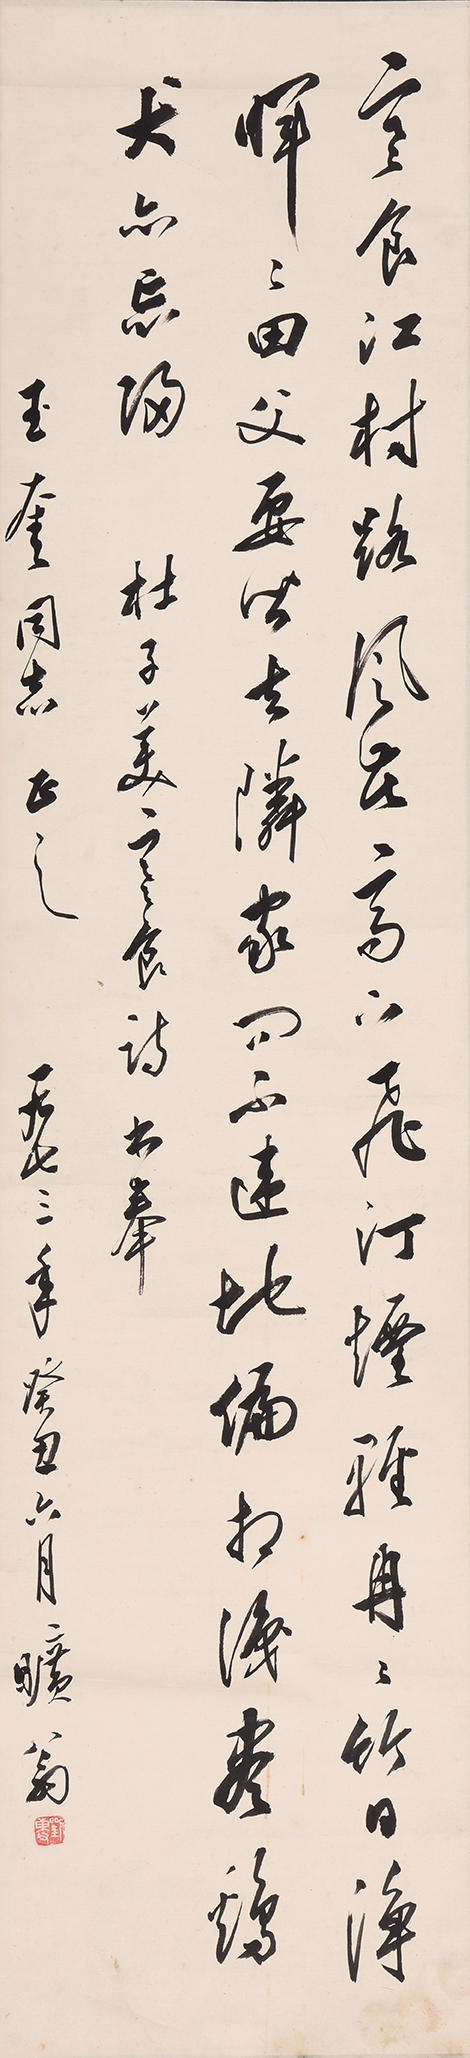 寒食江村路風花高下飛汀煙輕冉〻竹日淨
暉〻田父要皆去隣家問不違地偏相識盡鷄
犬亦忘歸 杜子美寒食詩 書奉
玉奎同志 正之 一九七三年癸丑六月 曠翁